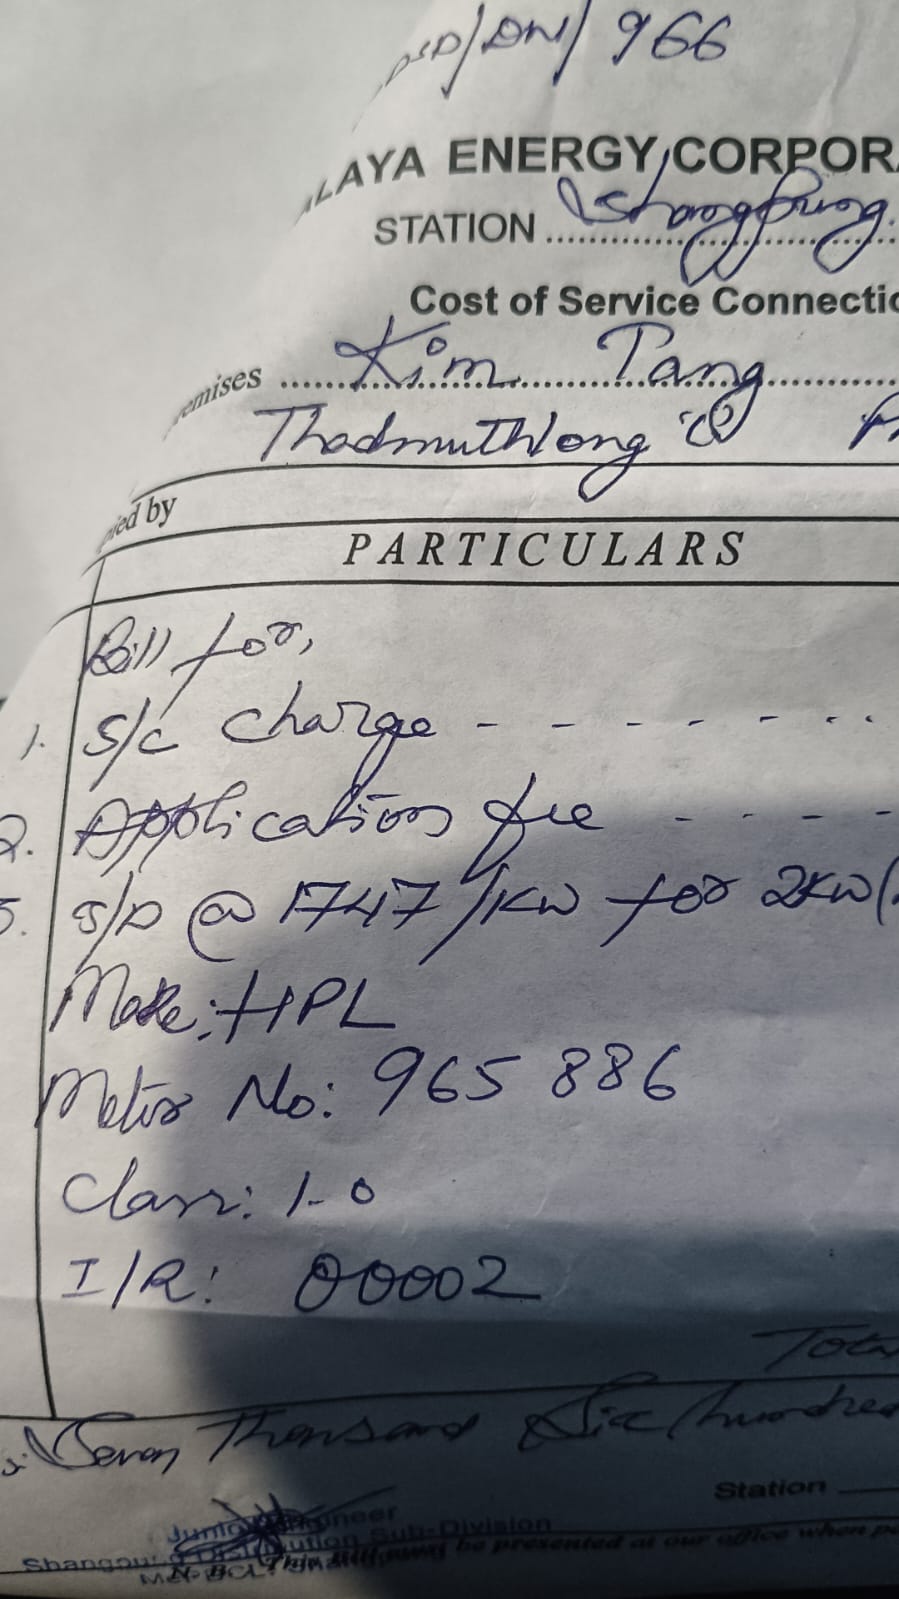 /DW/966
LAYA ENERGY CORPORA
STATION Shangpung
Cost of Service Connectio
emises Kim Pang
Thadmuthlong 'C'
ied by
PARTICULARS
Bill for,
1. S/C charge - - - - - - - -
2. Application fee - - - -
3. S/D @ 1747/1KW for 2KW(
Make: HPL
Meter No: 965 886
Class: 1-0
I/R: 00002
Tota
Seven Thousand Six hundred
Station
Junior Engineer
Shangpung Distribution Sub-Division
N.B. This Bill must be presented at our office when pa